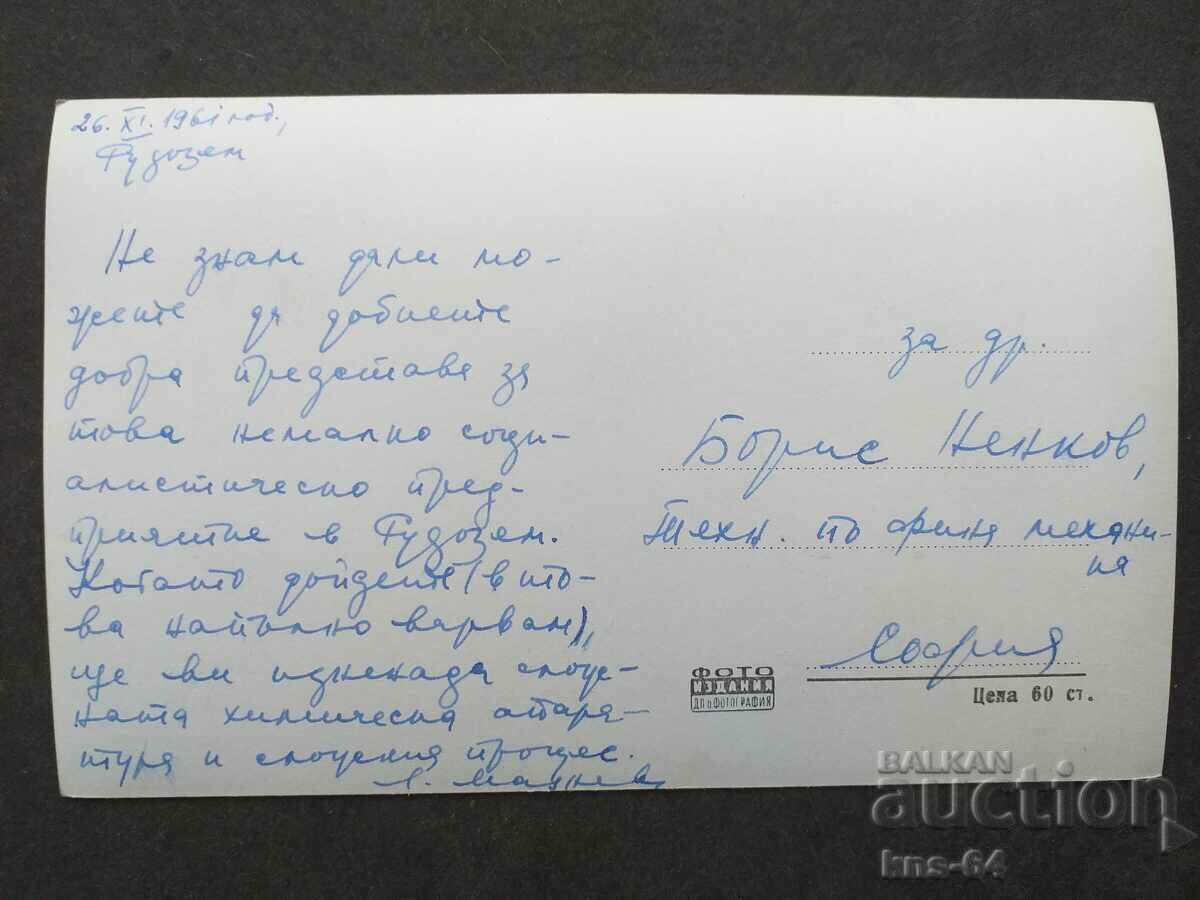 26. XI. 1961 год.,
Рудозем
Не знам дали мо-
жете да добиете
добра представа за
това немалко соци-
алистическо пред-
приятие в Рудозем.
Когато дойдете (в то-
ва напълно вярвам),
ще ви изненада слож-
ната химическа апара-
тура и сложния процес.
за др.
Борис Ненков,
Техн. по фина механи-
ка
София
ФОТО
ИЗДАНИЯ
ДП п ФОТОГРАФИЯ
Цена 60 ст.
BALKAN
auction
kns-64